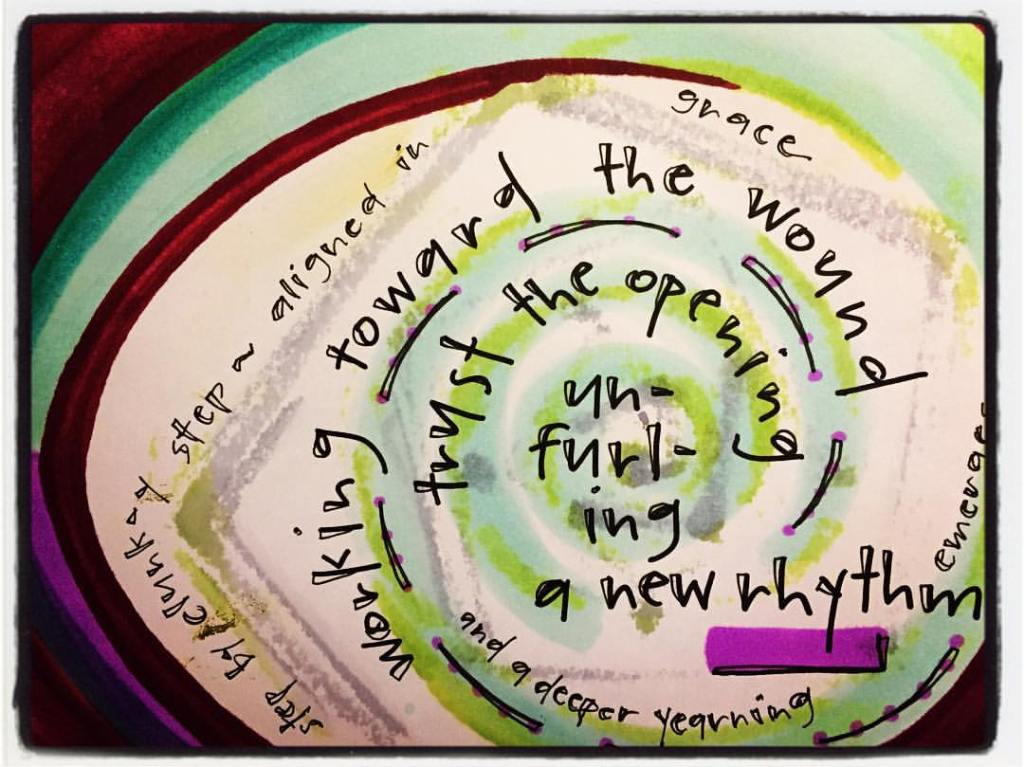 working toward the wound
trust the opening
un-
furl-
ing
a new rhythm
emerges
and a deeper yearning
step by clunk-y step ~ aligned in grace